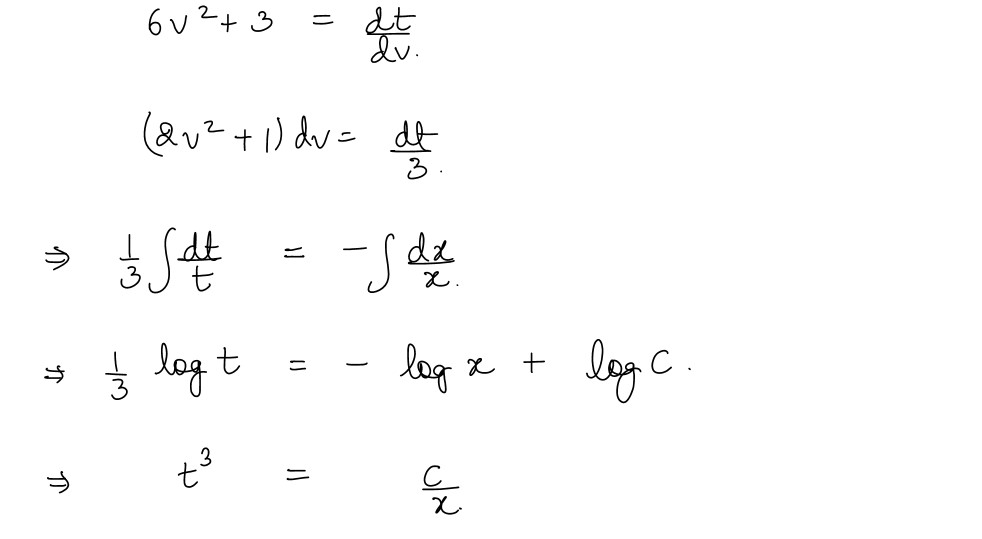 6v² + 3 = dt/dv.
(2v² + 1) dv = dt/3.
⇒ 1/3 ∫ dt/t = - ∫ dx/x.
⇒ 1/3 log t = - log x + log C.
⇒ t³ = C/x.